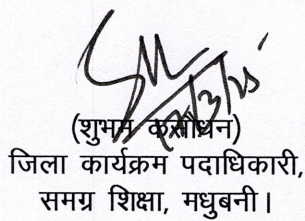 17/3/25
(शुभम कसौधन)
जिला कार्यक्रम पदाधिकारी,
समग्र शिक्षा, मधुबनी।